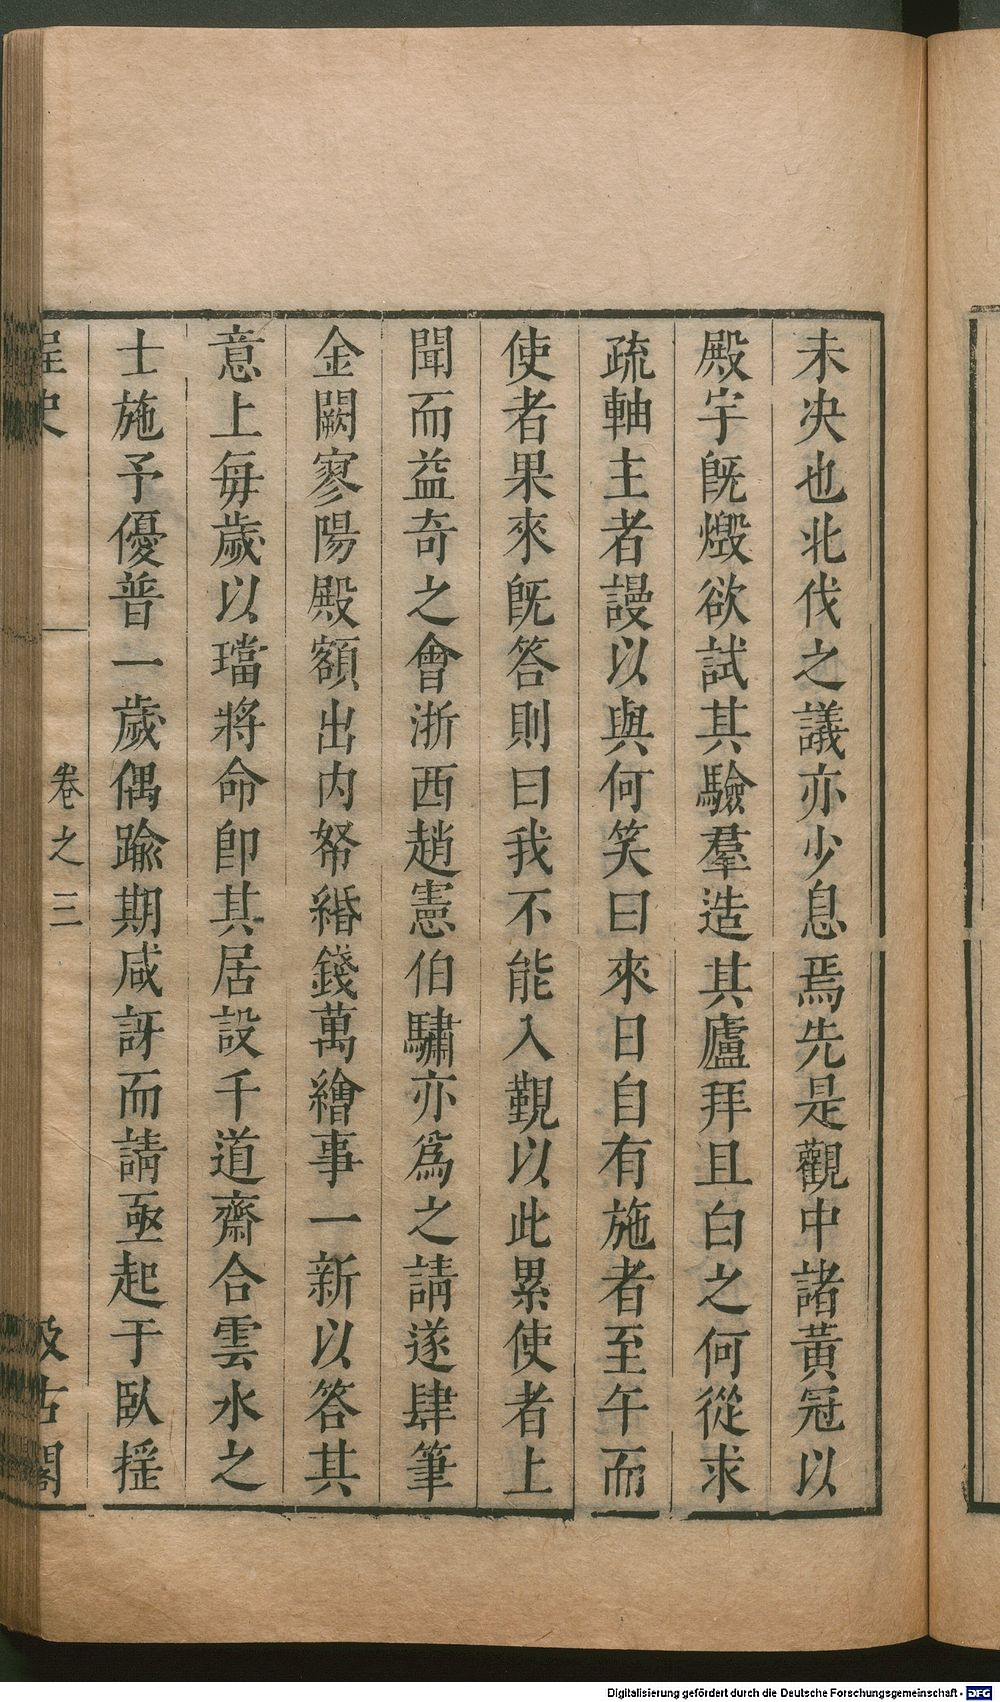 未決也北伐之議亦少息焉先是觀中諸黃冠以
殿宇旣燬欲試其驗羣造其廬拜且白之何從求
疏軸主者謾以與何笑曰來日自有施者至午而
使者果來旣答則曰我不能入覲以此累使者上
聞而益奇之會浙西趙憲伯驌亦爲之請遂肆筆
金闕寥陽殿額出内帑緡錢萬繪事一新以答其
意上每歲以璫將命卽其居設千道齋合雲水之
士施予優普一歲偶踰期咸訝而請亟起于臥搖
桯史 卷之三 汲古閣
Digitalisierung gefördert durch die Deutsche Forschungsgemeinschaft - DFG